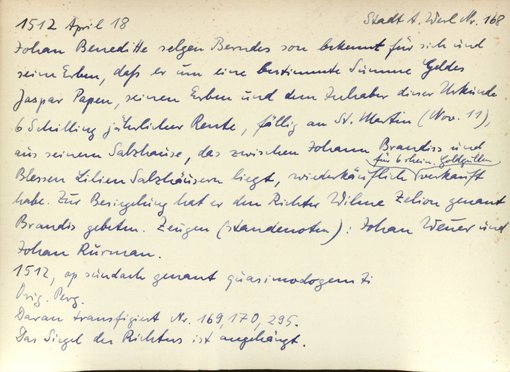 1512 April 18 Stadt A. Werl Nr. 168
Johan Beneditte selgen Berndes son bekennt für sich und
seine Erben, daß er um eine bestimmte Summe Geldes
Jaspar Papen, seinen Erben und dem Inhaber dieser Urkunde
6 Schilling jährlicher Rente, fällig an St. Martin (Nov. 11),
aus seinem Salzhause, das zwischen Johann Brandiss und
für 6 rhein. Goldgulden
Blessen Lilien Salzhäusern liegt, wiederkäuflich verkauft
habe. Zur Besiegelung hat er den Richter Wilme Zelion genant
Brandis gebeten. Zeugen (standenoten): Johan Wener und
Johan Rurman.
1512, op sundach genant quasimodogeniti
Orig. Perg.
Daran transfigiert Nr. 169, 170, 295.
Das Siegel des Richters ist angehängt.